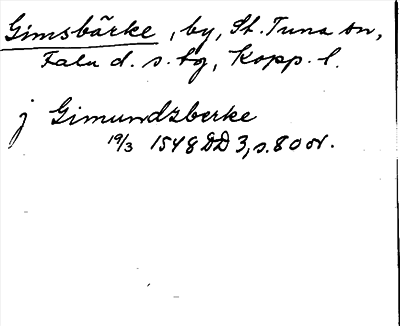 Gimsbärke, by, St. Tuna sn,
Falu d. s. tg, Kopp. l.
j Gimundzberke
19/3 1548 DD 3, s. 80 or.